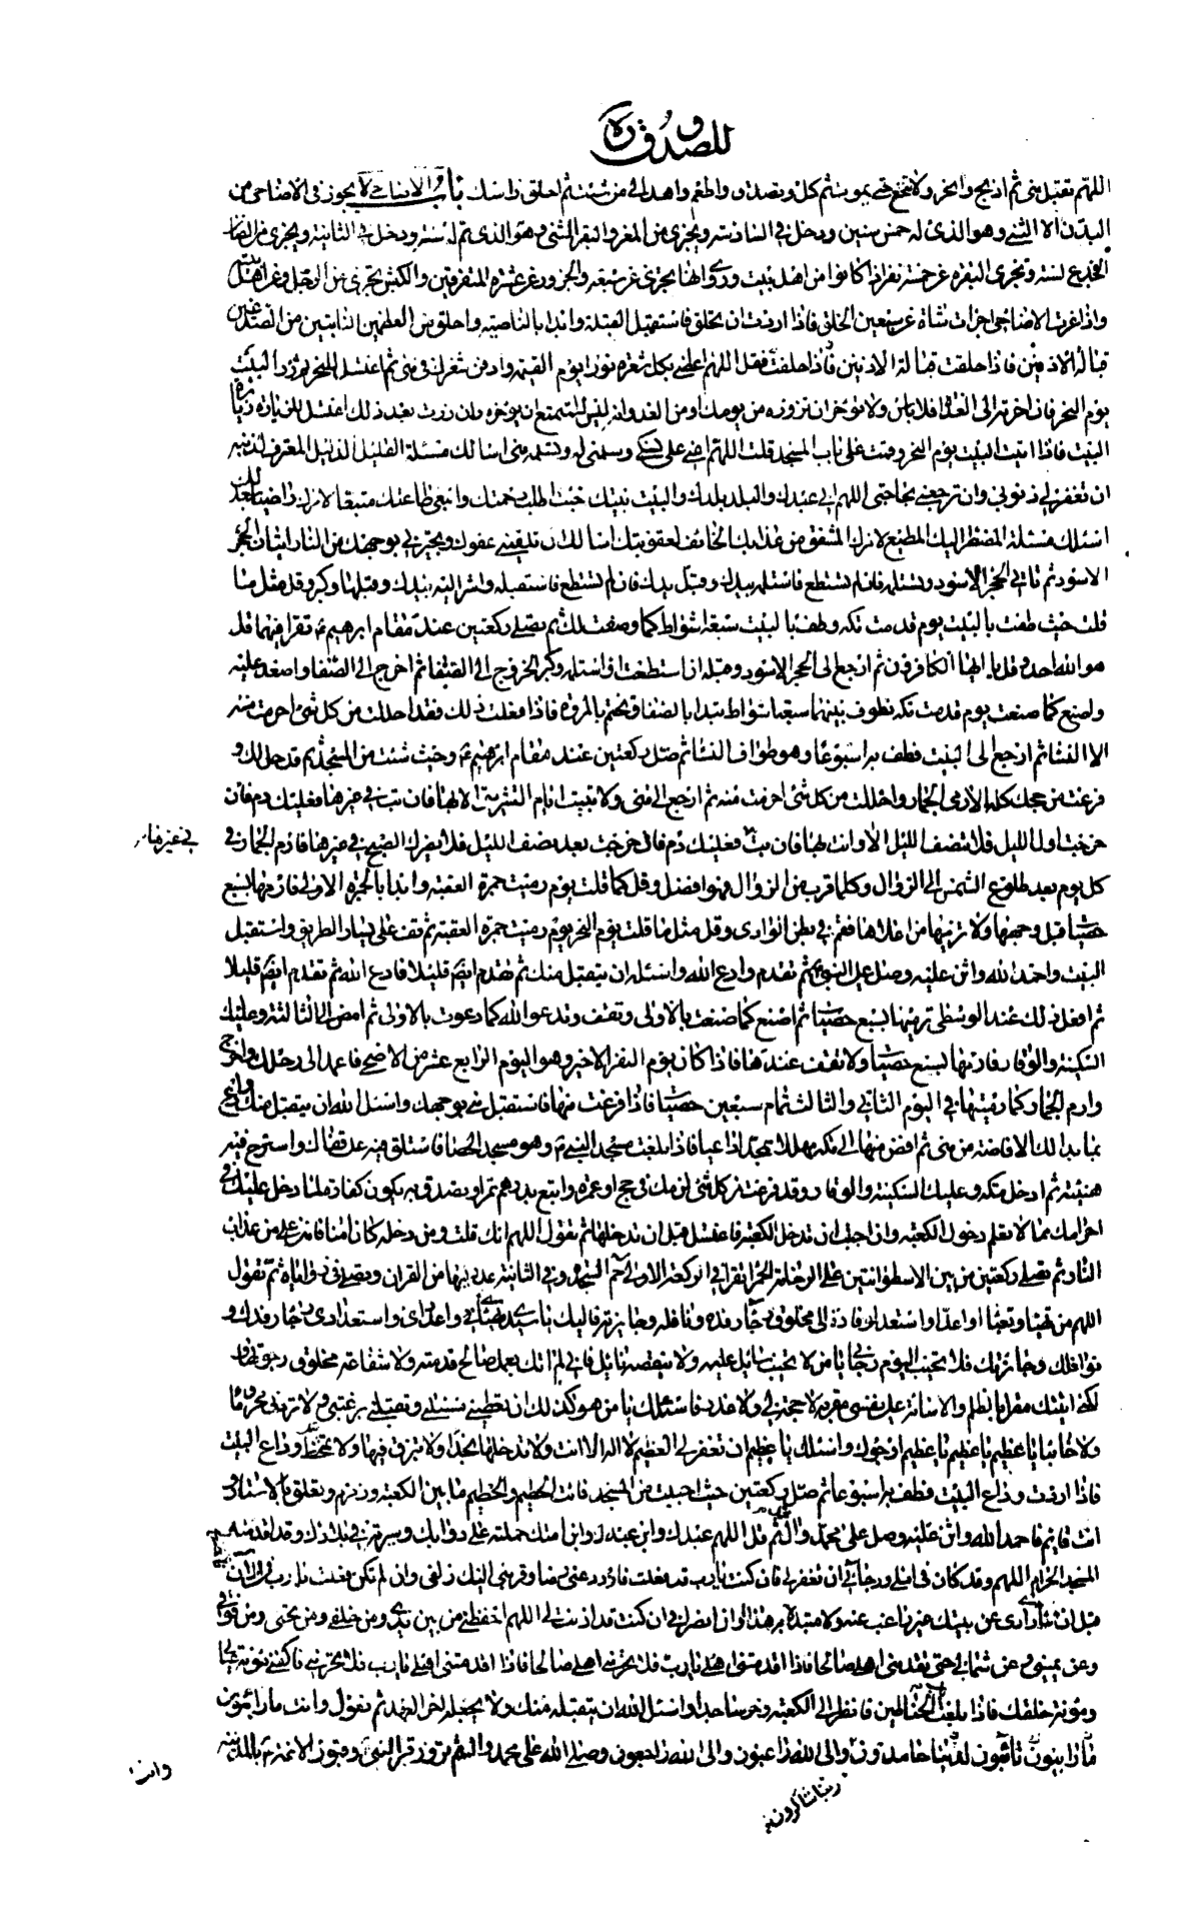 للصدوق ره
اللهم تقبل مني ثم اذبح وانحر ولا تنخع حتى يموت ثم كل وتصدق واطعم واهد الى من شئت ثم احلق راسك باب الاضاحي لا يجوز في الاضاحي من
البدن الا الثني وهو الذي له خمس سنين ودخل في السادسة ويجزي من المعز والبقر الثني وهو الذي تم له سنة ودخل في الثانية ويجزي من الضان
الجذع لسنة وتجزي البقرة عن خمسة نفر اذا كانوا من اهل بيت وروي انها تجزي عن سبعة والجزور عن عشرة متفرقين والكبش يجزي عن الرجل وعن اهل بيته
واذا عزت الاضاحي اجزات شاة عن سبعين الحلق فاذا اردت ان تحلق فاستقبل القبلة وابدا بالناصية واحلق من العظمين النابتين من الصدغين
قبالة الاذنين فاذا حلقت فقل اللهم اعطني بكل شعرة نورا يوم القيمة وادفن شعرك في منى ثم اغتسل للنحر زر البيت
يوم النحر فان اخرته الى الغد فلا باس ولا تؤخر ان تزوره من يومك او من الغد فانه ليس للمتمتع ان يؤخره وان زرت بعد ذلك اغتسل للزيارة زيارة
البيت فاذا اتيت البيت يوم النحر وقمت على باب المسجد قلت اللهم اعني على نسكك وسلمني له وتسلمه مني اسالك مسئلة القليل الذليل المعترف بذنبه
ان تغفر لي ذنوبي وان ترجعني بحاجتي اللهم اني عبدك والبلد بلدك والبيت بيتك جئت اطلب رحمتك وابتغي طاعتك متبعا لامرك راضيا بعدلك
اسئلك مسئلة المضطر اليك المطيع لامرك المشفق من عذابك الخائف لعقوبتك اسالك ان تلقيني عفوك وتجيرني بوجهك من النار اتيان الحجر
الاسود ثم تاتي الحجر الاسود وتستلمه فان لم تستطع فاستلمه بيدك وقبل يدك فان لم تستطع فاستقبله واشر اليه بيدك وقبلها وكبر وقل مثل ما
قلت حيث طفت بالبيت يوم قدمت مكة وطف بالبيت سبعة اشواط كما وصفت لك ثم تصلي ركعتين عند مقام ابرهيم ع تقرا فيهما قل
هو الله احد وقل يا ايها الكافرون ثم ارجع الى الحجر الاسود وقبله ان استطعت او استلمه وكبر الخروج الى الصفا ثم اخرج الى الصفا واصعد عليه
واصنع كما صنعت يوم قدمت مكة تطوف بينهما سبعة اشواط تبدا بالصفا وتختم بالمروة فاذا فعلت ذلك فقد احللت من كل شئ احرمت منه
الا النساء ثم ارجع الى البيت فطف به اسبوعا وهو طواف النساء ثم صل ركعتين عند مقام ابرهيم ع وحيث شئت من المسجد ثم قد حل لك و
فرغت من حجك كله الا رمي الجمار واحللت من كل شئ احرمت منه ثم ارجع الى منى ولا تبيت ايام التشريق الا بها فان بت في غيرها فعليك دم فان
خرجت اول الليل فلا ينتصف الليل الا وانت بها فان بت فعليك دم فان خرجت بعد نصف الليل فلا يضرك الصبح في غيرها وارم الجمار في
في غيرها
كل يوم بعد طلوع الشمس الى الزوال وكلما قرب من الزوال فهو افضل وقل كما قلت يوم رميت جمرة العقبة وابدا بالجمرة الاولى فارمها بسبع
حصيات قبل وجهها ولا ترمها من اعلاها فقم في بطن الوادي وقل مثل ما قلت يوم النحر يوم رميت جمرة العقبة ثم قف على يسار الطريق واستقبل
البيت واحمد الله واثن عليه وصل على النبي ثم تقدم وادع الله واسئله ان يتقبل منك ثم تقدم ايضا قليلا فادع الله ثم تقدم ايضا قليلا
ثم افعل ذلك عند الوسطى ترميها بسبع حصيات ثم اصنع كما صنعت بالاولى وتقف وتدعو الله كما دعوت بالاولى ثم امض الى الثالثة وعليك
السكينة والوقار فارمها بسبع حصيات ولا تقف عندها فاذا كان يوم النفر الاخير وهو اليوم الرابع عشر من الاضحى فاعمد الى رحلك واخرج
وارم الجمار كما رميتها في اليوم الثاني والثالث تمام سبعين حصيات فاذا فرغت منها فاستقبل منى بوجهك واسئل الله ان يتقبل منك وادع
بما بدا لك الافاضة من منى ثم افض منها الى مكة مهللا ممجدا داعيا فاذا بلغت مسجد النبي ص وهو مسجد الحصبا فاستلق فيه على قفاك واسترح فيه
هنيئة ثم ادخل مكة وعليك السكينة والوقار وقد فرغت من كل شئ لزمك في حج او عمرة وابتع بدرهم تمرا وتصدق به يكون كفارة لما دخل عليك في
احرامك مما لا تعلم دخول الكعبة وان احببت ان تدخل الكعبة فاغتسل قبل ان تدخلها ثم تقول اللهم انك قلت ومن دخله كان امنا فامني من عذاب
النار ثم تصلي ركعتين بين الاسطوانتين على الرخامة الحمرا تقرا في الركعة الاولى حم السجدة وفي الثانية عدد ايها من القران وتصلي في زواياه ثم تقول
اللهم من تهيا وتعبا او اعد واستعد لوفادة الى مخلوق رجاء رفده ونوافله وجايزته فاليك يا سيدي تهيئتي واعدادي واستعدادي رجاء رفدك و
نوافلك وجائزتك فلا تخيب اليوم رجائي يا من لا يخيب سائل عليه ولا ينقصه نايل فاني لم اتك بعمل صالح قدمته ولا شفاعة مخلوق رجوته
لكني اتيتك مقرا بالظلم والاساءة على نفسي مقرا لا حجة لي ولا عذر فاسئلك يا من هو كذلك ان تعطيني مسئلتي وتقبلني برغبتي ولا تردني محروما
ولا خائبا يا عظيم يا عظيم يا عظيم ارجوك واسئلك يا عظيم ان تغفر لي العظيم لا اله الا انت ولا تدخلها بحذاء ولا تبزق فيها ولا تمتخط وداع البيت
فاذا اردت وداع البيت فطف به اسبوعا ثم صل ركعتين حيث احببت من المسجد فائت الحطيم والحطيم ما بين الكعبة وزمزم وتعلق بالاستار و
انت قايم فاحمد الله واثن عليه وصل على محمد واله ثم قل اللهم عبدك وابن عبدك وابن امتك حملته على دوابك وسيرته في بلادك وقد اقدمته
المسجد الحرام اللهم وقد كان في املي ورجائي ان تغفر لي فان كنت يا رب قد فعلت فازدد عني رضا وقربني اليك زلفى وان لم تكن فعلت يا رب فمن الان
قبل ان تنائ داري عن بيتك غير راغب عنه ولا مستبدل به هذا اوان انصرافي ان كنت قد اذنت لي اللهم احفظني من بين يدي ومن خلفي ومن تحتي ومن فوقي
وعن يميني وعن شمالي حتى تقدمني اهلي صالحا فاذا اقدمتني اهلي يا رب فلا تحرمني اهلي صالحا فاذا اقدمتني اهلي يا رب فلا تحرمني فاكفني مؤنة عيالي
ومؤنة خلقك فاذا بلغت باب الحناطين فانظر الى الكعبة وخر ساجدا واسئل الله ان يتقبله منك ولا يجعله اخر العهد ثم تقول وانت مار ائبون
تائبون لربنا حامدون والى الله راغبون والى الله راجعون وصلى الله على محمد واله ثم تزور قبر النبي ص وقبور الائمة ع بالمدينة
ربنا شاكرون
وانت